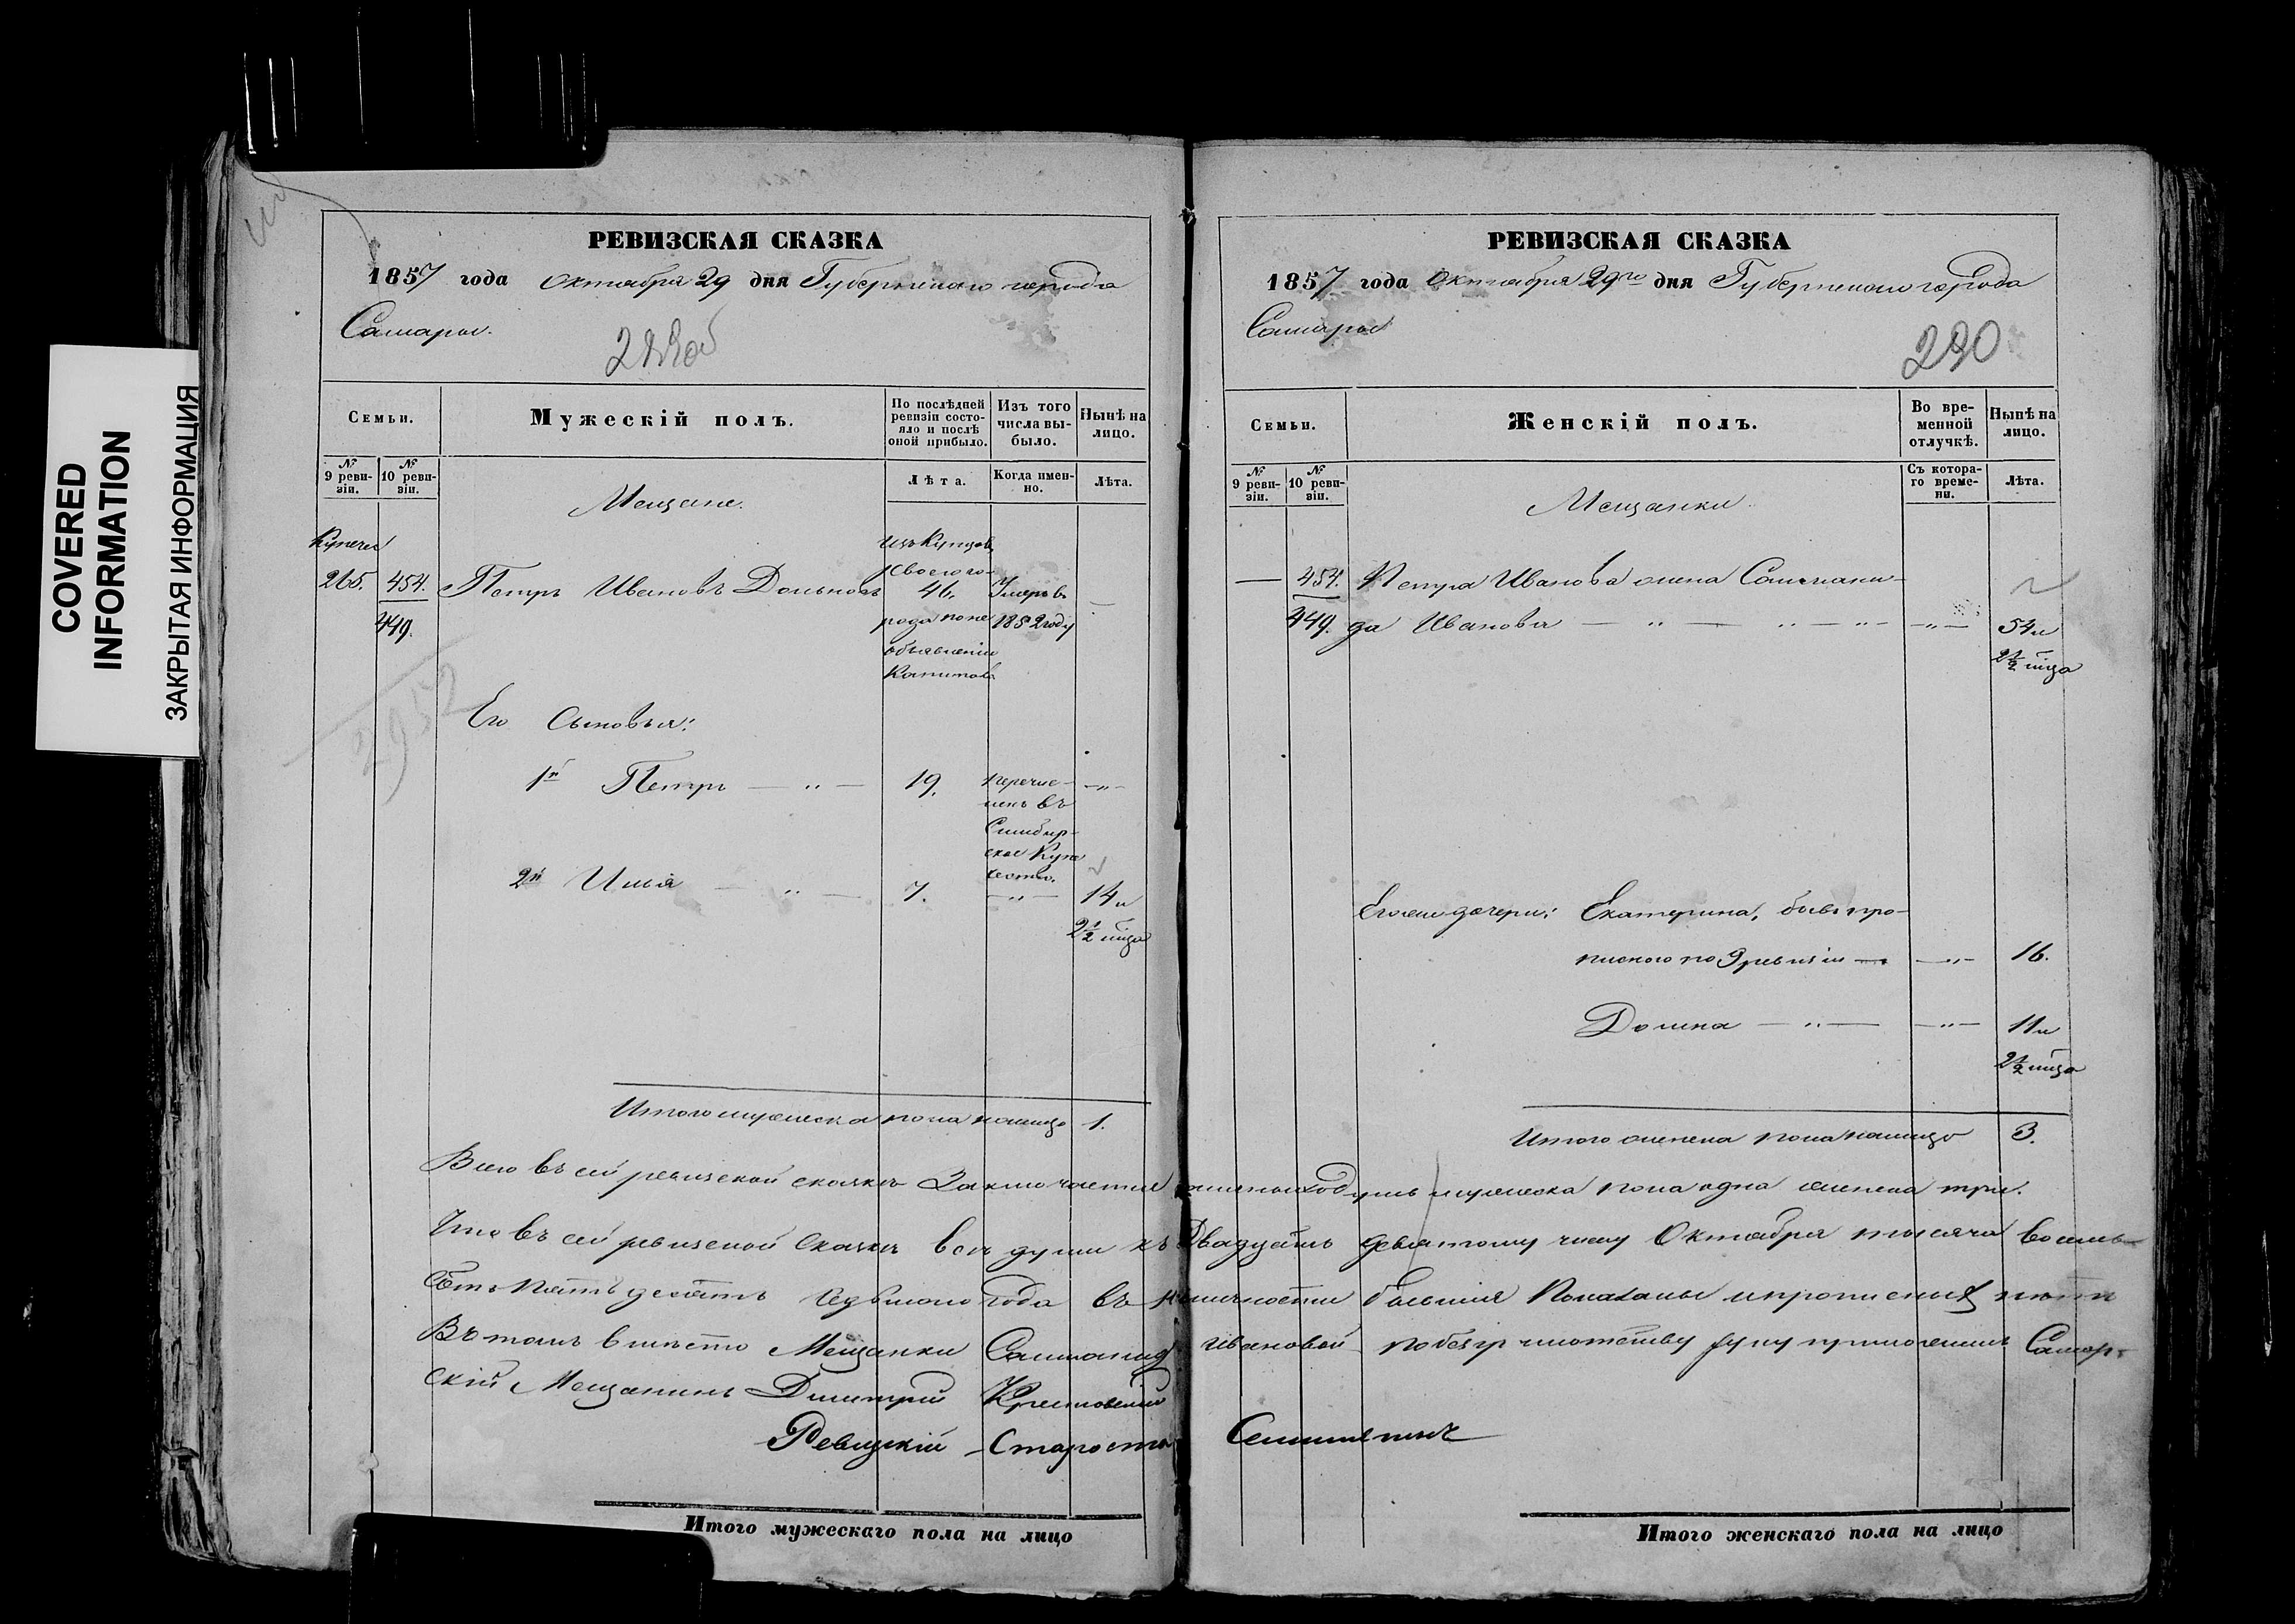 COVERED
INFORMATION
ЗАКРЫТАЯ ИНФОРМАЦИЯ
РЕВИЗСКАЯ СКАЗКА
1857 года Октября 29 дня Губернскаго города
Самары.
Семьи.
Мужескій полъ.
По послѣдней
ревизіи состо-
яло и послѣ
оной прибыло.
Изъ того
числа вы-
было.
Нынѣ на
лицо.
№
9 реви-
зіи.
№
10 реви-
зіи.
Лѣта.
Когда имен-
но.
Лѣта.
Мещане.
Купечес
изъ Купцовъ
своего го-
265. 454. Петръ Ивановъ Долновъ 46. Умеръ въ
449. рода по не 1852 году
объявленію
Капитала
Его Сыновья:
1й Петръ — „ — 19. перечис- — „ —
ленъ въ
Симбир-
ское Купе
чество.
2й Илья — „ — 7. — „ — 14 и
2 1/2 мѣца
Итого мужеска пола налицо 1.
РЕВИЗСКАЯ СКАЗКА
1857 года Октября 29го дня Губернскаго города
Самары
290
Семьи.
Женскій полъ.
Во вре-
менной
отлучкѣ.
Нынѣ на
лицо.
№
9 реви-
зіи.
№
10 реви-
зіи.
Съ котора-
го време-
ни.
Лѣта.
Мещанки
— 454. Петра Иванова жена Саломани-
449. да Иванова — „ — „ — „ — — „ — 54 и
2 1/2 мѣца
Егоже дочери: Екатерина, бывъ про-
писного по 9 ревизіи — — „ — 16.
Домна — „ — — „ — 11 и
2 1/2 мѣца
Итого женска пола налицо 3.
Всего въ сей ревизской сказкѣ Заключается наличныхъ душъ мужеска пола одна женска три.
Что въ сей ревизской Сказкѣ всѣ души къ Двадцать девятому числу Октября тысяча восемь-
сотъ Пятьдесятъ седьмого года въ наличности бывшія Показаны и прописныхъ нѣтъ
Въ томъ вмѣсто Мещанки Саломанид Ивановой по безграмотству руку приложилъ Самар-
скій Мещанинъ Димитрій
Ревизскій Староста
Итого мужескаго пола на лицо
Итого женскаго пола на лицо